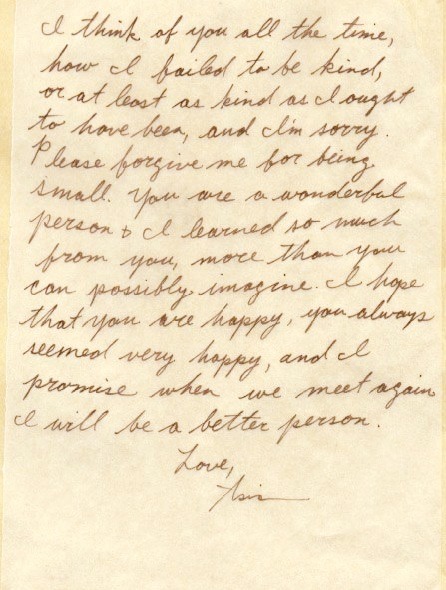 I think of you all the time,
how I failed to be kind,
or at least as kind as I ought
to have been, and I'm sorry.
Please forgive me for being
small. You are a wonderful
person & I learned so much
from you, more than you
can possibly imagine. I hope
that you are happy, you always
seemed very happy, and I
promise when we meet again
I will be a better person.
Love,